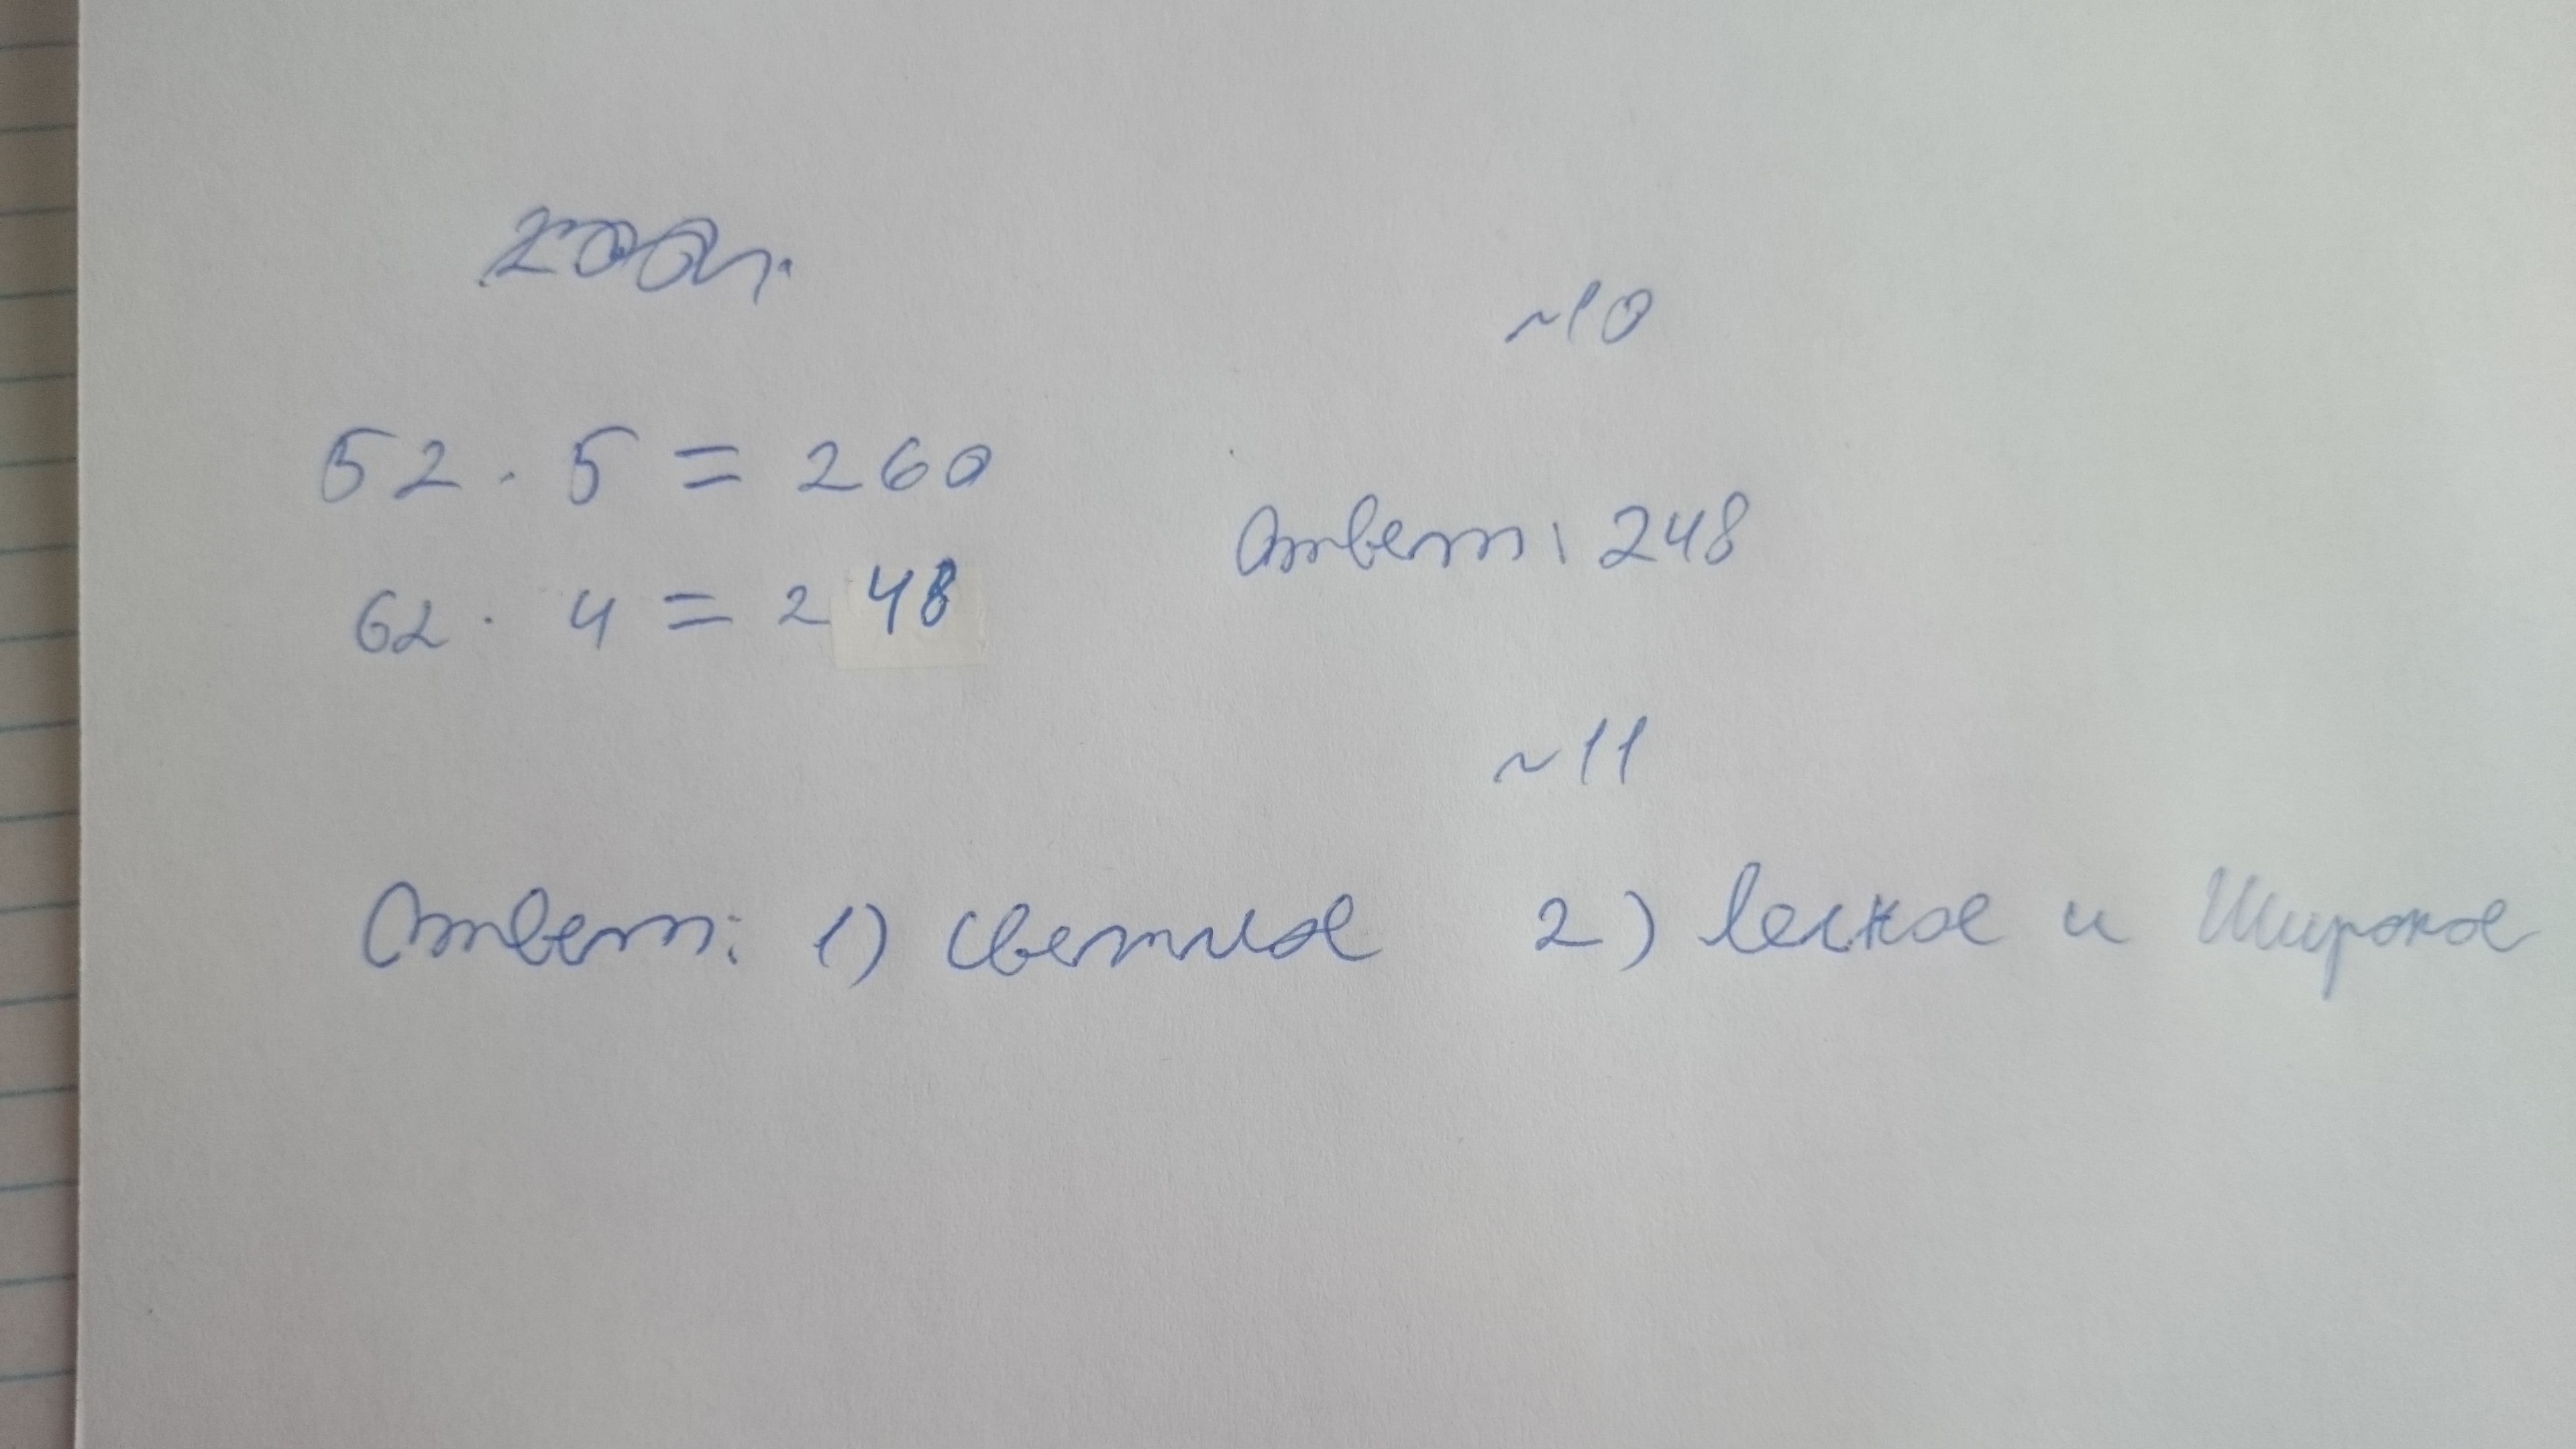 ~10
52 · 5 = 260
62 · 4 = 248
Ответ: 248
~11
Ответ: 1) Светлое 2) Лесное и Широкое